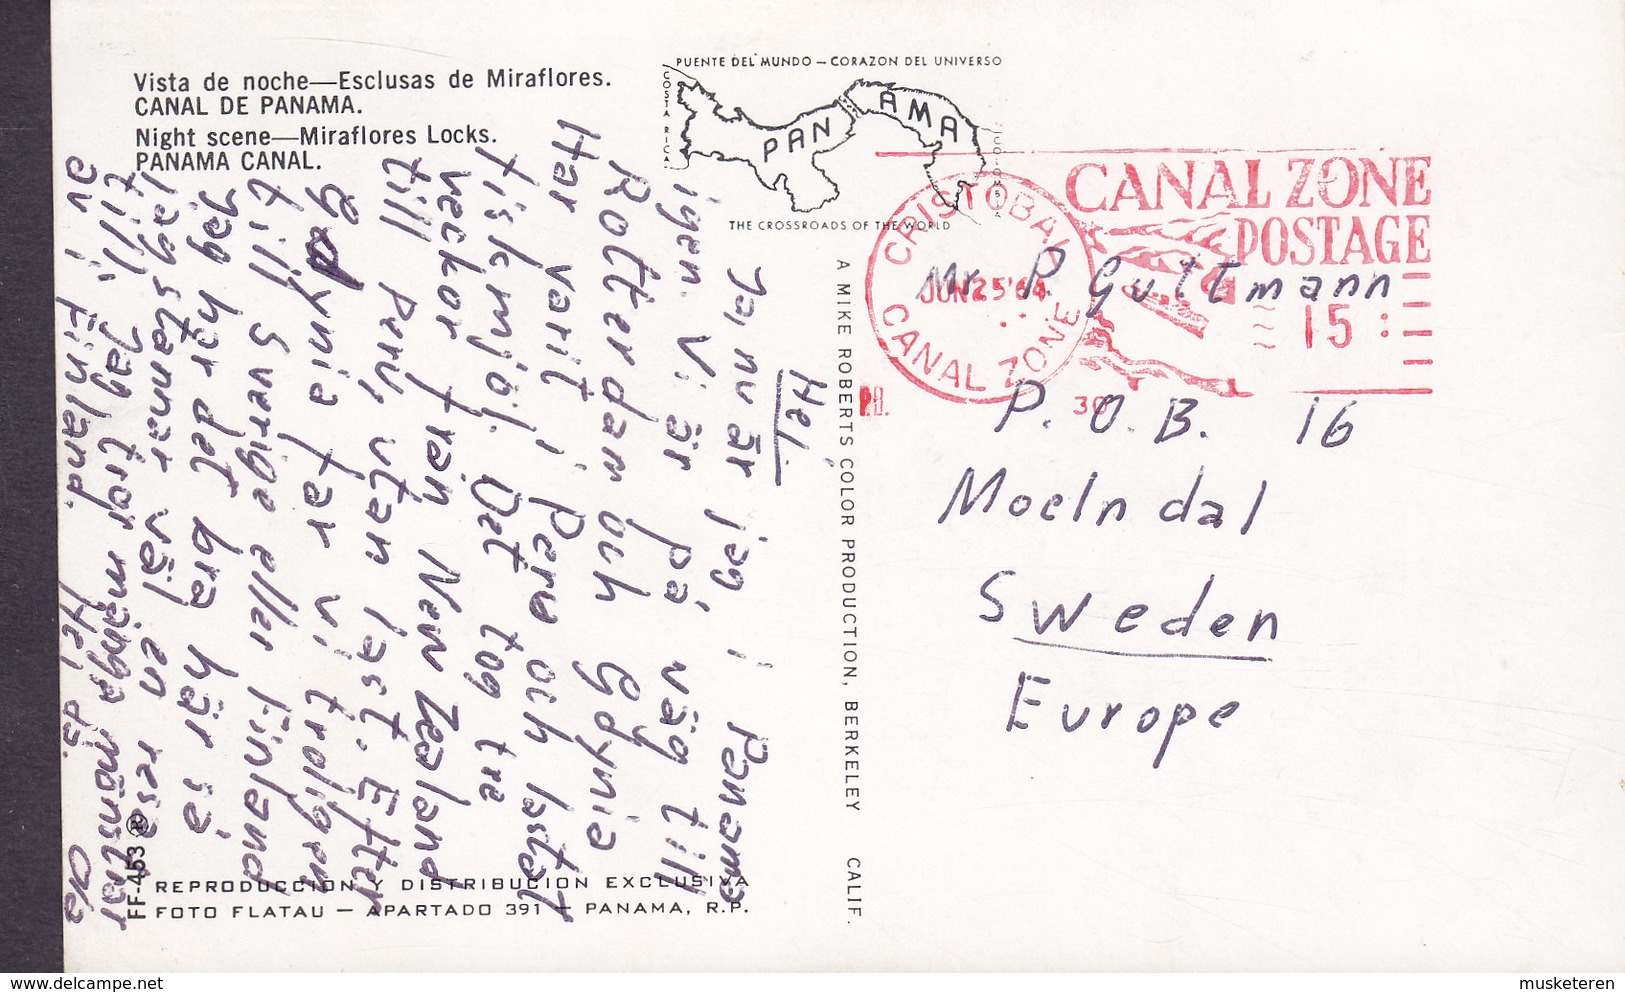 Vista de noche—Esclusas de Miraflores.
CANAL DE PANAMA.
Night scene—Miraflores Locks.
PANAMA CANAL.
PUENTE DEL MUNDO — CORAZON DEL UNIVERSO
COSTA RICA
PANAMA
COLOMBIA
THE CROSSROADS OF THE WORLD
CANAL ZONE
POSTAGE
15
CRISTOBAL
JUN 25 '64
CANAL ZONE
P.B.
30
Mr P. Guttmann
P. O. B. 16
Moelndal
Sweden
Europe
Hej.
Ja, nu är jag i Panama
igen. Vi är på väg till
Rotterdam och Gdynia
Har varit i Peru och lastat
fiskmjöl. Det tog tre
veckor från New Zealand
till Peru, utan last. Efter
Gdynia far vi troligen
till Sverige eller Finland
Jag har det bra här så
jag stannar väl en resa
till. Jag tror många mönstrar
av i Finland. Hej då. Ola
A MIKE ROBERTS COLOR PRODUCTION, BERKELEY CALIF.
FF-453 ®
REPRODUCCION Y DISTRIBUCION EXCLUSIVA
FOTO FLATAU — APARTADO 391 — PANAMA, R.P.
musketeren